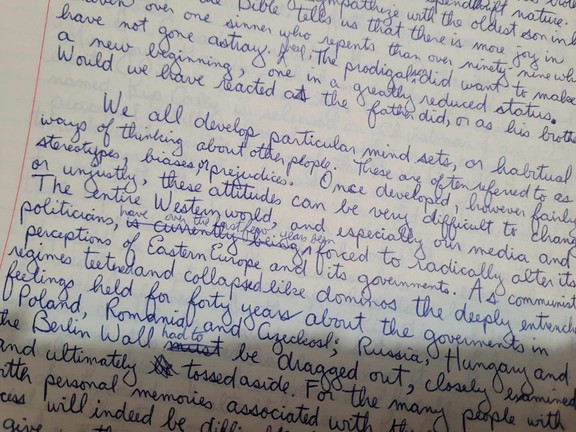 spendthrift nature.
sympathize with the oldest son in
the Bible tells us that there is more joy in
heaven over one sinner who repents than over ninety-nine who
have not gone astray. The prodigal did want to make
a new beginning, one in a greatly reduced status.
Would we have reacted as the father did, or as his brothe
We all develop particular mind sets, or habitual
ways of thinking about other people. These are often referred to as
stereotypes, biases, or prejudices. Once developed, however fairly
or unjustly, these attitudes can be very difficult to chang
The entire Western world, and especially our media and
have over the past few years been
politicians, is currently being forced to radically alter its
perceptions of Eastern Europe and its governments. As communist
regimes teetered and collapsed like dominos the deeply entrench
feelings held for forty years about the goverments in
Poland, Romania, and Czechosl; Russia, Hungary and
had to
the Berlin Wall must be dragged out, closely examined
and ultimately tossed aside. For the many people with
with personal memories associated with the
cess will indeed be diffi
give